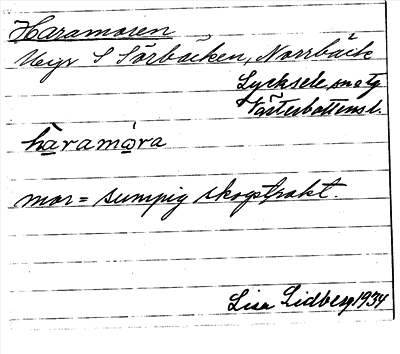 Haramoren
S Sörbäcken, Norrbäck
Lycksele
Västerbottens l.
hàramóra
mor = sumpig skogstrakt.
Lisa Lidberg 1934